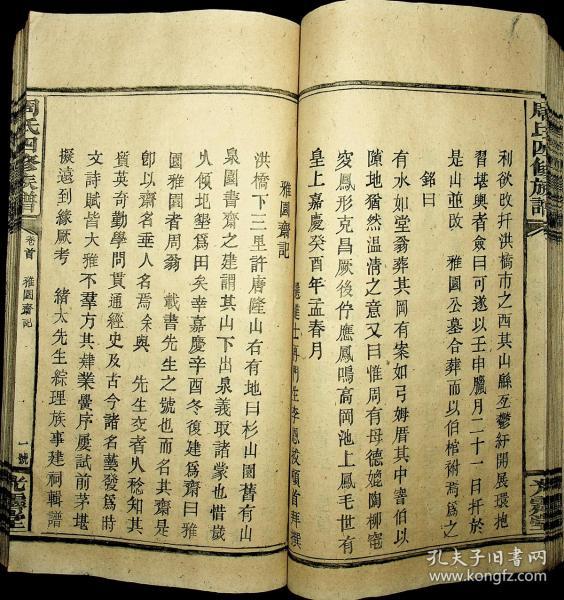 周氏四修族譜
利欲改扦洪橋市之西其山縣亙鬱紆開展環抱
習堪輿者僉曰可遂以壬申臘月二十一日扦於
是山並改 雅園公墓合葬而以伯棺祔焉爲之
銘曰
有水如堂翁葬其岡有案如弓姆厝其中窨伯以
隙地猶然溫清之意又曰惟周有母德媲陶柳窀
窆鳳形克昌厥後佇應鳳鳴高岡池上鳳毛世有
皇上嘉慶癸酉年孟春月
頓首拜撰
雅園齋記
洪橋下三里許唐隆山右有地曰杉山園舊有山
泉園書齋之建謂其山下出泉義取諸蒙也惜歲
乆傾圮墾爲田矣幸嘉慶辛酉冬復建爲齋曰雅
園雅園者周翁 載書先生之號也而名其齋是
卽以齋名垂人名焉余與 先生交者乆稔知其
質英奇勤學問貫通經史及古今諸名藝發爲時
文詩賦皆大雅不羣方其肄業黌序屢試前茅堪
擬遠到緣厥考 緒太先生綜理族事建祠輯譜
周氏四修族譜
卷首 雅園齋記
一號
孔夫子旧书网
www.kongfz.com